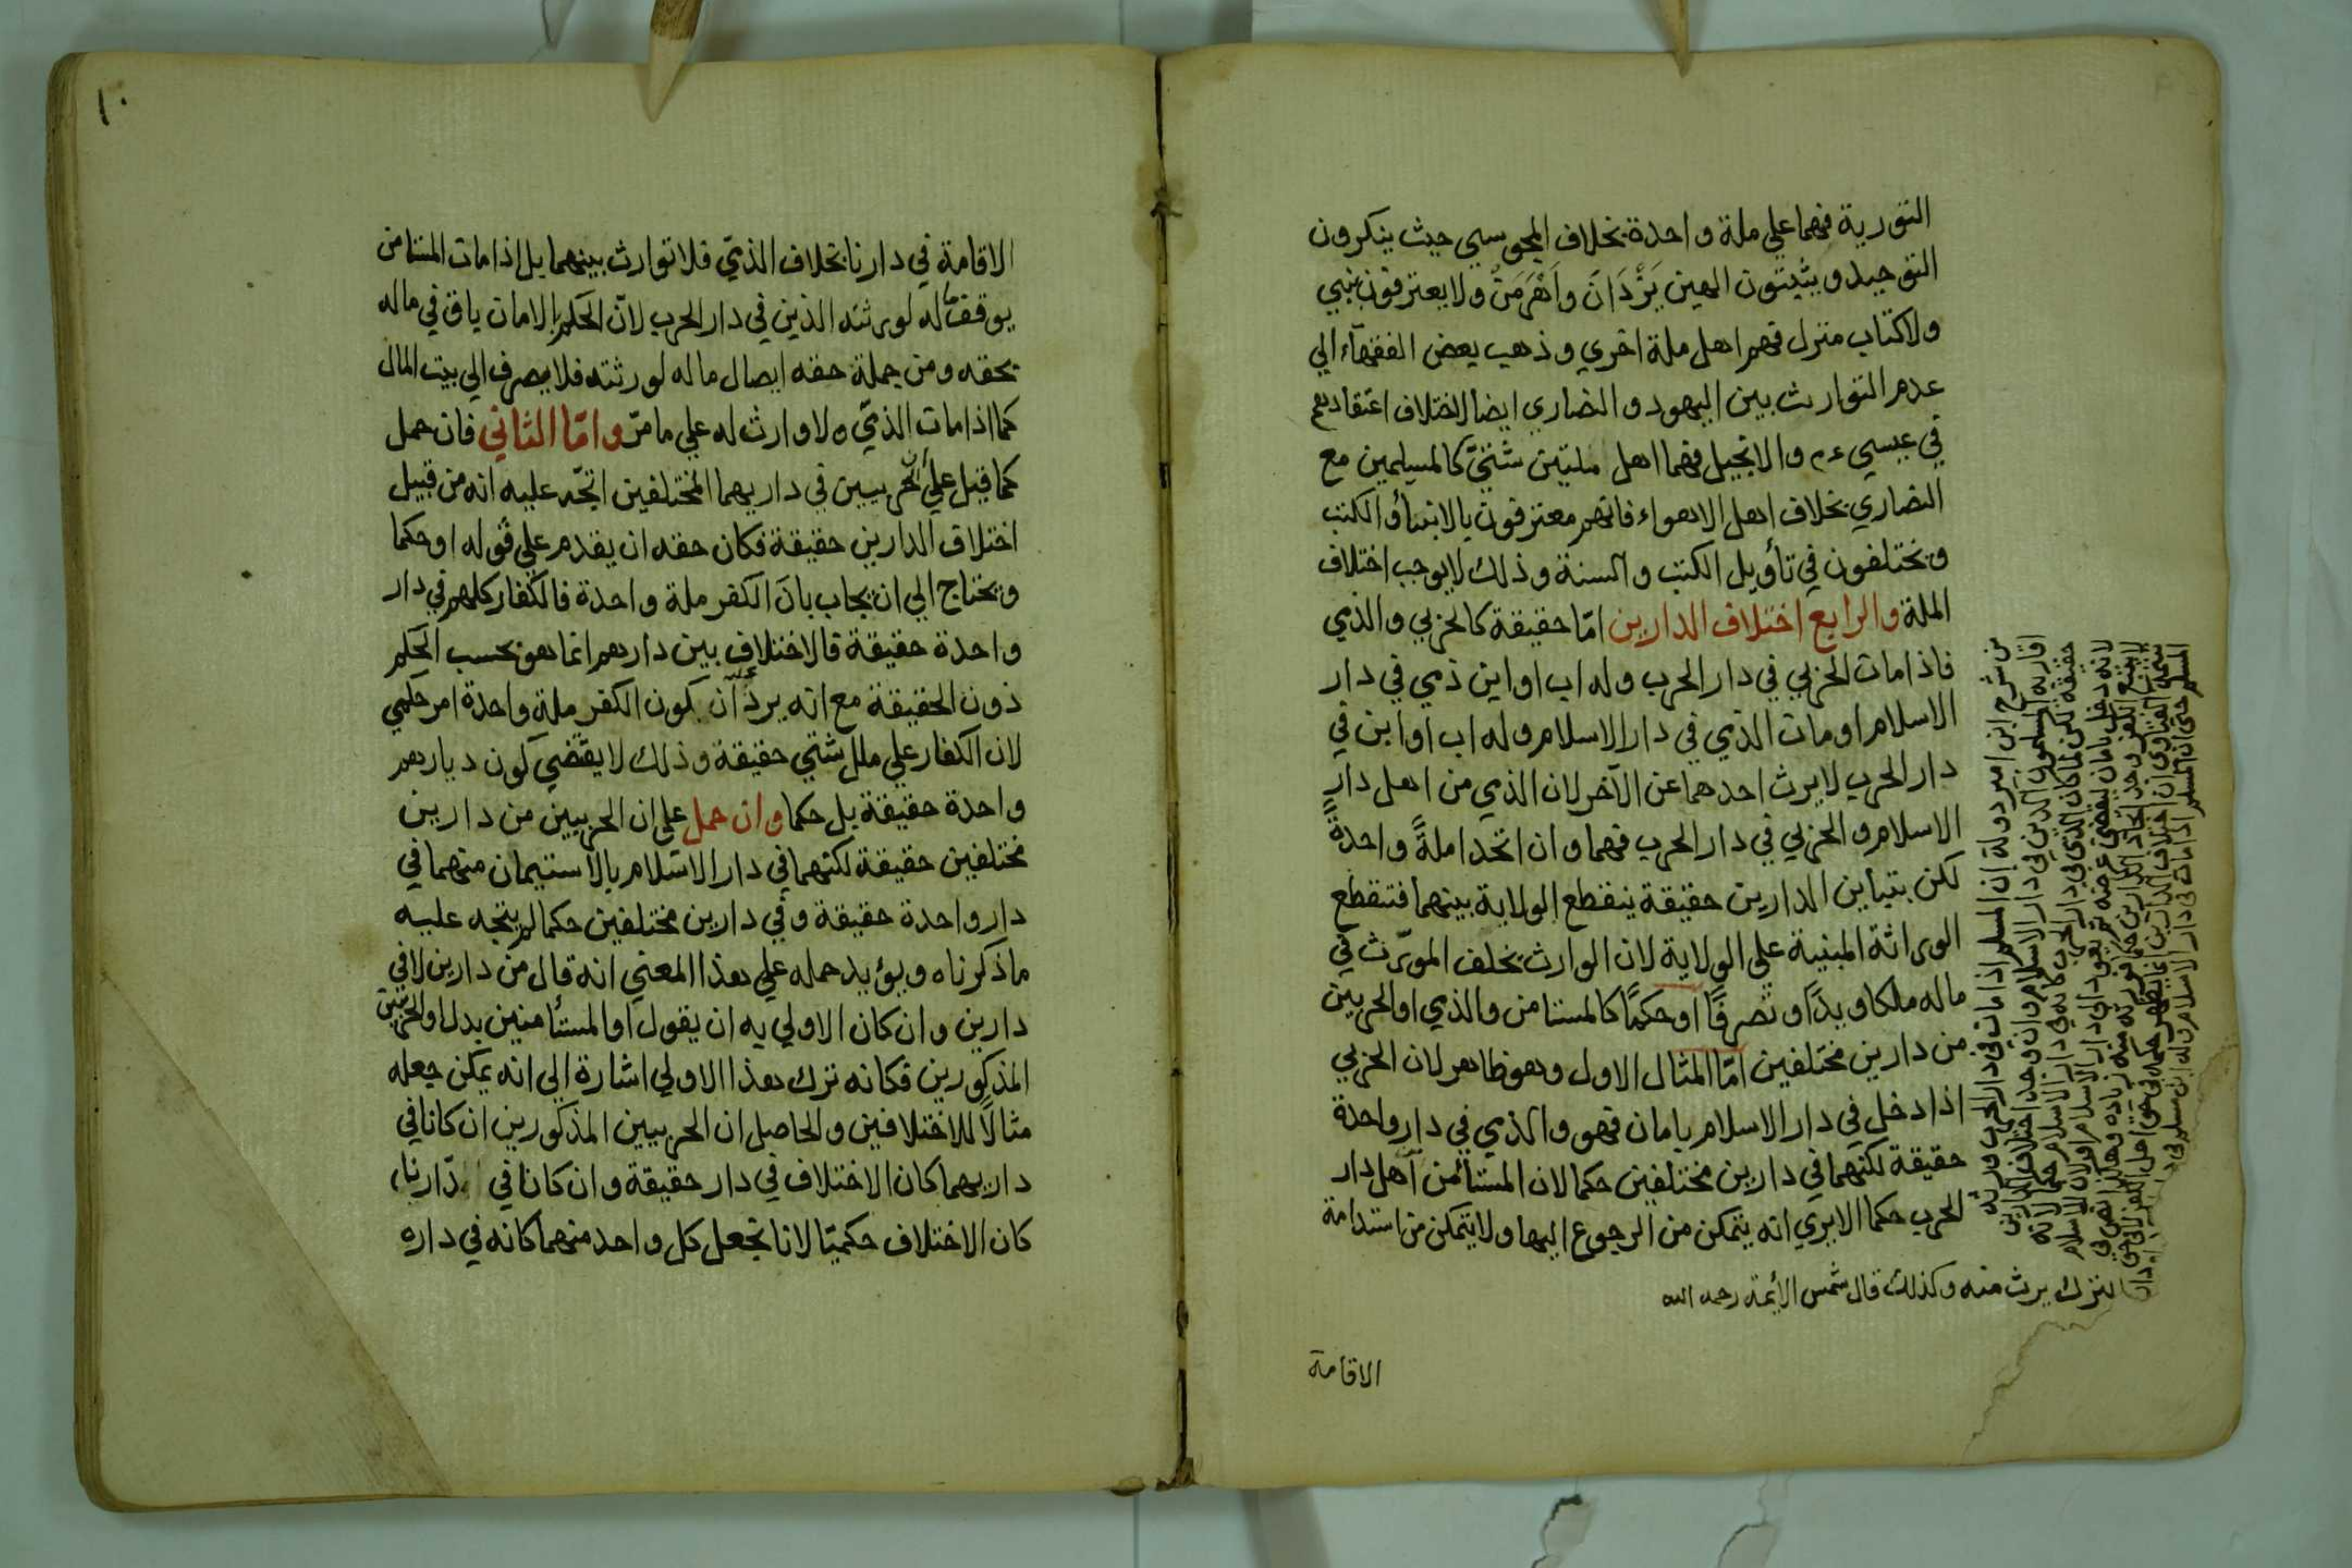 التورية فهما علي ملة واحدة بخلاف المجوسي حيث ينكرون
التوحيد ويثبتون الهين يَزْدَانَ واَهْرَمَنْ ولا يعترفون بنبي
ولا كتاب منزل فهم اهل ملة اخري وذهب بعض الفقهآء الي
عدم التوارث بين اليهود والنصاري ايضا لاختلاف اعتقادهم
في عيسي ءم والانجيل فهما اهل ملتين شتيّ كالمسلمين مع
النصاري بخلاف اهل الاهواء فانهم معترفون بالانبيأ والكتب
ويختلفون في تأويل الكتب والسنة وذلك لا يوجب اختلاف
الملة والرابع اختلاف الدارين امّا حقيقة كالحربي والذمي
فاذا مات الحربي في دار الحرب وله اب او ابن ذمي في دار
الاسلام او مات الذمي في دار الاسلام وله اب او ابن في
دار الحرب لا يرث احدهما عن الآخر لان الذمي من اهل دار
الاسلام والحربي في دار الحرب فهما وان اتحدا ملةً واحدةً
لكن بتباين الدارين حقيقة ينقطع الولاية بينهما فتنقطع
الوراثة المبنية علي الولاية لان الوارث يخلف المورّث في
ماله ملكا ويدًا وتصرفًا او حكمًا كالمستامن والذمي او الحربيين
من دارين مختلفين امّا المثال الاول وهو ظاهر لان الحربي
اذا دخل في دار الاسلام بامان فهو والذمي في دار واحدة
حقيقة لكنهما في دارين مختلفين حكما لان المستأمن اهل دار
الحرب حكما الا يري انه يتمكن من الرجوع اليها ولا يتمكن من استدامة
من شرح ابن امير دولة ان المسلم اذا مات في دار الحرب ورثه
اقاربه المسلمون الذين في دار الاسلام وان وجد اختلاف الدارين
حقيقة لكن لما كان الذي في دار الحرب كانه في دار الاسلام حكما لانه
لانه دخل بامان ليقضي غرضه ثم يعود الي دار الاسلام
المسلم حتي ان المسلم اذا مات في دار الاسلام وله ابن مسلم في د
الترك يرث منه وكذلك قال شمس الأئمة رحمه الله
الاقامة
١٠
الاقامة في دارنا بخلاف الذميّ فلا توارث بينهما بل اذا مات المستامن
يوقف ماله لورثته الذين في دار الحرب لانّ الحكم بالامان باق في ماله
بحقه ومن جملة حقه ايصال ماله لورثته فلا يصرف الي بيت المال
كما اذا مات الذميّ ولا وارث له علي ما مرّ وامّا الثاني فان حمل
كما قيل علي الحربيين في داريهما المختلفين اتجّه عليه انه من قبيل
اختلاف الدارين حقيقة فكان حقه ان يقدم علي قوله او حكما
ويحتاج الي ان يجاب بانّ الكفر ملة واحدة فالكفار كلهم في دار
واحدة حقيقة فالاختلاف بين دارهم انما هو بحسب الحكم
دون الحقيقة مع انه يرد ان كون الكفر ملة واحدة امر حكمي
لان الكفار علي ملل شتي حقيقة وذلك لا يقتضي كون ديارهم
واحدة حقيقة بل حكما وان حمل علي ان الحربيين من دارين
مختلفين حقيقة لكنهما في دار الاسلام بالاستيمان منهما في
دار واحدة حقيقة وفي دارين مختلفين حكما لم يتجه عليه
ما ذكرناه ويؤيد حمله علي هذا المعني انه قال من دارين لا في
دارين وان كان الاولي به ان يقول او المستأمنين بدل او الحربيين
المذكورين فكانه ترك هذا الاولي اشارة الي انه يمكن جعله
مثالًا للاختلافين والحاصل ان الحربيين المذكورين ان كانا في
داريهما كان الاختلاف في دار حقيقة وان كانا في دارنا
كان الاختلاف حكميّا لانا نجعل كل واحد منهما كانه في داره